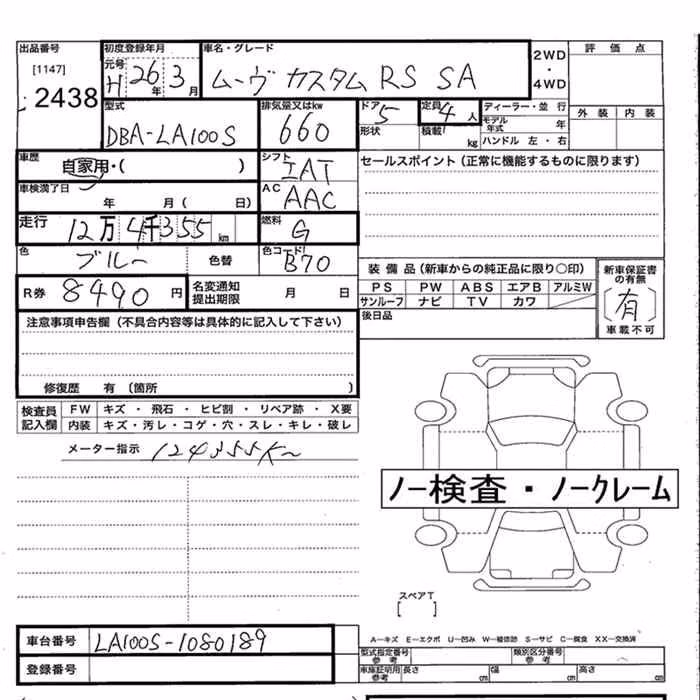 出品番号
[1147]
2438
初度登録年月
元号
H 26年 3月
車名・グレード
ムーヴ カスタム RS SA
2WD
・
4WD
評価点
外装 内装
型式
DBA-LA100S
排気量又はkw
660
ドア
5
形状
定員
4人
積載
kg
ディーラー・並行
モデル年式 年
ハンドル 左・右
車歴
自家用・( )
シフト
IAT
セールスポイント (正常に機能するものに限ります)
車検満了日
年 月 ( 日)
AC
AAC
走行
12万4千355km
燃料
G
色
ブルー
色替
色コード
B70
R券 8490円
名変通知
提出期限
月 日
装備品 (新車からの純正品に限り〇印)
PS PW ABS エアB アルミW
サンルーフ ナビ TV カワ
新車保証書
の有無
[有]
車載不可
後日品
注意事項申告欄 (不具合内容等は具体的に記入して下さい)
修復歴 有 (箇所 )
検査員
記入欄
FW キズ・飛石・ヒビ割・リペア跡・X要
内装 キズ・汚レ・コゲ・穴・スレ・キレ・破レ
メーター指示 124355K
ノー検査・ノークレーム
スペアT
[ ]
車台番号 LA100S-1080189
登録番号
A-キズ E-エクボ U-凹み W-補修跡 S-サビ C-腐食 XX-交換済
型式指定番号
参考
類別区分番号
参考
車庫証明用
参考
長さ cm 幅 cm 高さ cm